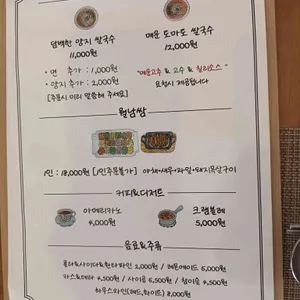 담백한 양지 쌀국수
11,000원
매운 토마토 쌀국수
12,000원
· 면 추가 : 1,000원
· 양지 추가 : 2,000원
[주문시 미리 말씀해 주세요]
"매운고추 & 고수 & 칠리소스"
요청시 제공됩니다
월남쌈
1인 : 18,000원 [1인주문불가] / 야채+새우+파인+돼지목살구이
커피&디저트
아메리카노
4,000원
크렘블레
5,000원
음료&주류
콜라&사이다&환타파인 2,000원 / 레몬에이드 6,000원
카스&테라 4,500원 / 사이공 6,500원 / 청이슬 4,500원
하우스와인(레드,화이드) 8,000원